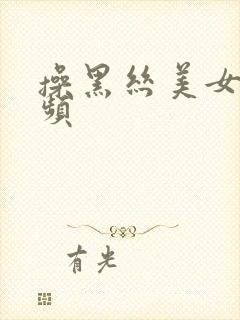 操黑丝美女
频
有光